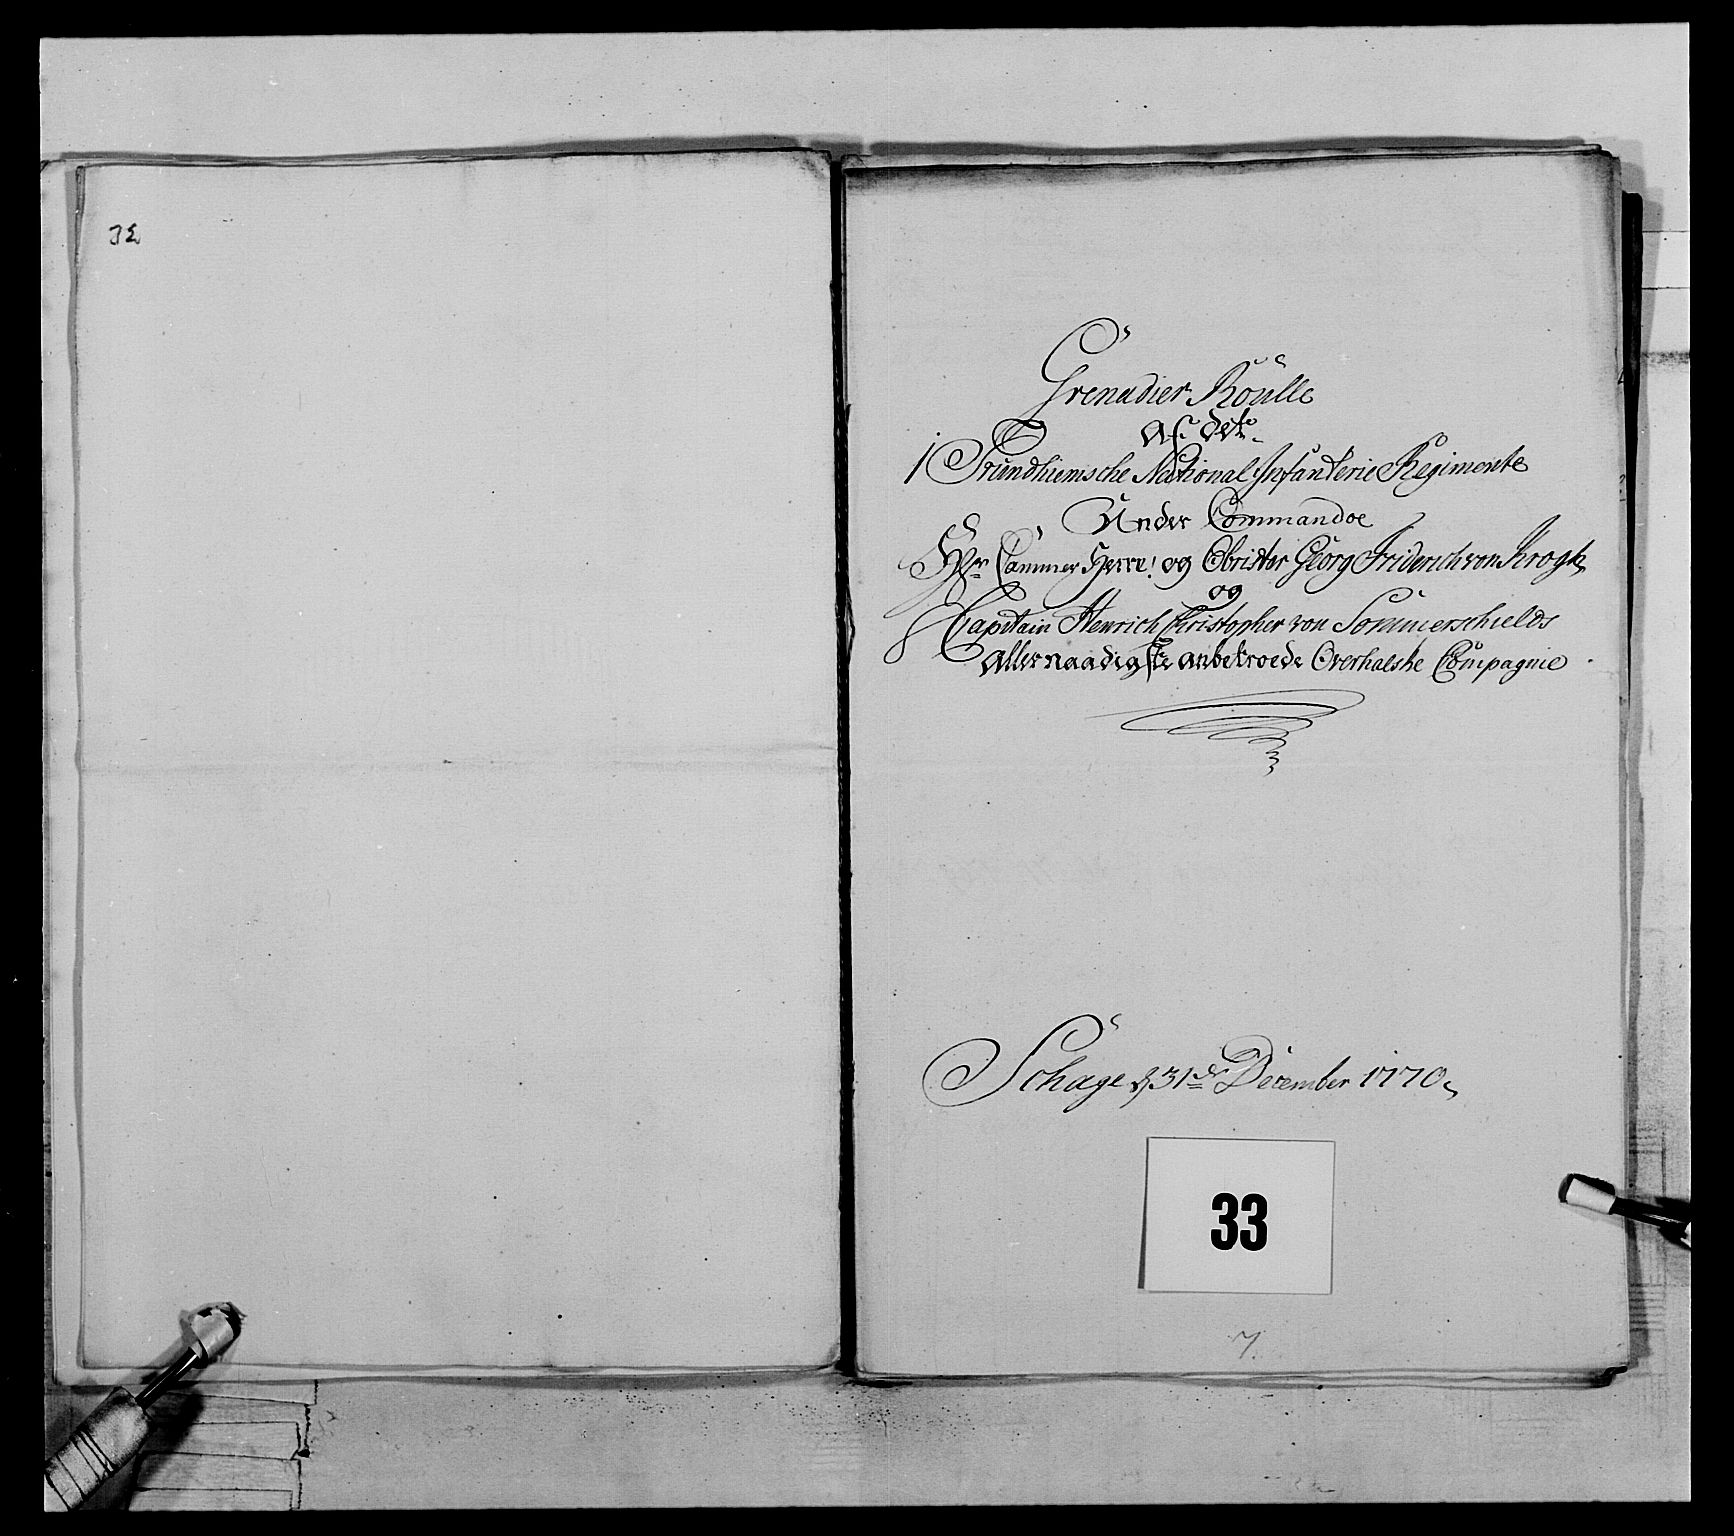 32
Grenadier Roulle
af det
1 Trundhiemsche National Infanterie Regimente
Under Commandoe
Hr Cammer Herre! og Obrister Georg Friderich von Krogh
og
Capitain Henrich Christopher von Sommerschields
allernaadigste anbetroede Overhalske Compagnie
Schage d 31de December 1770
33
7